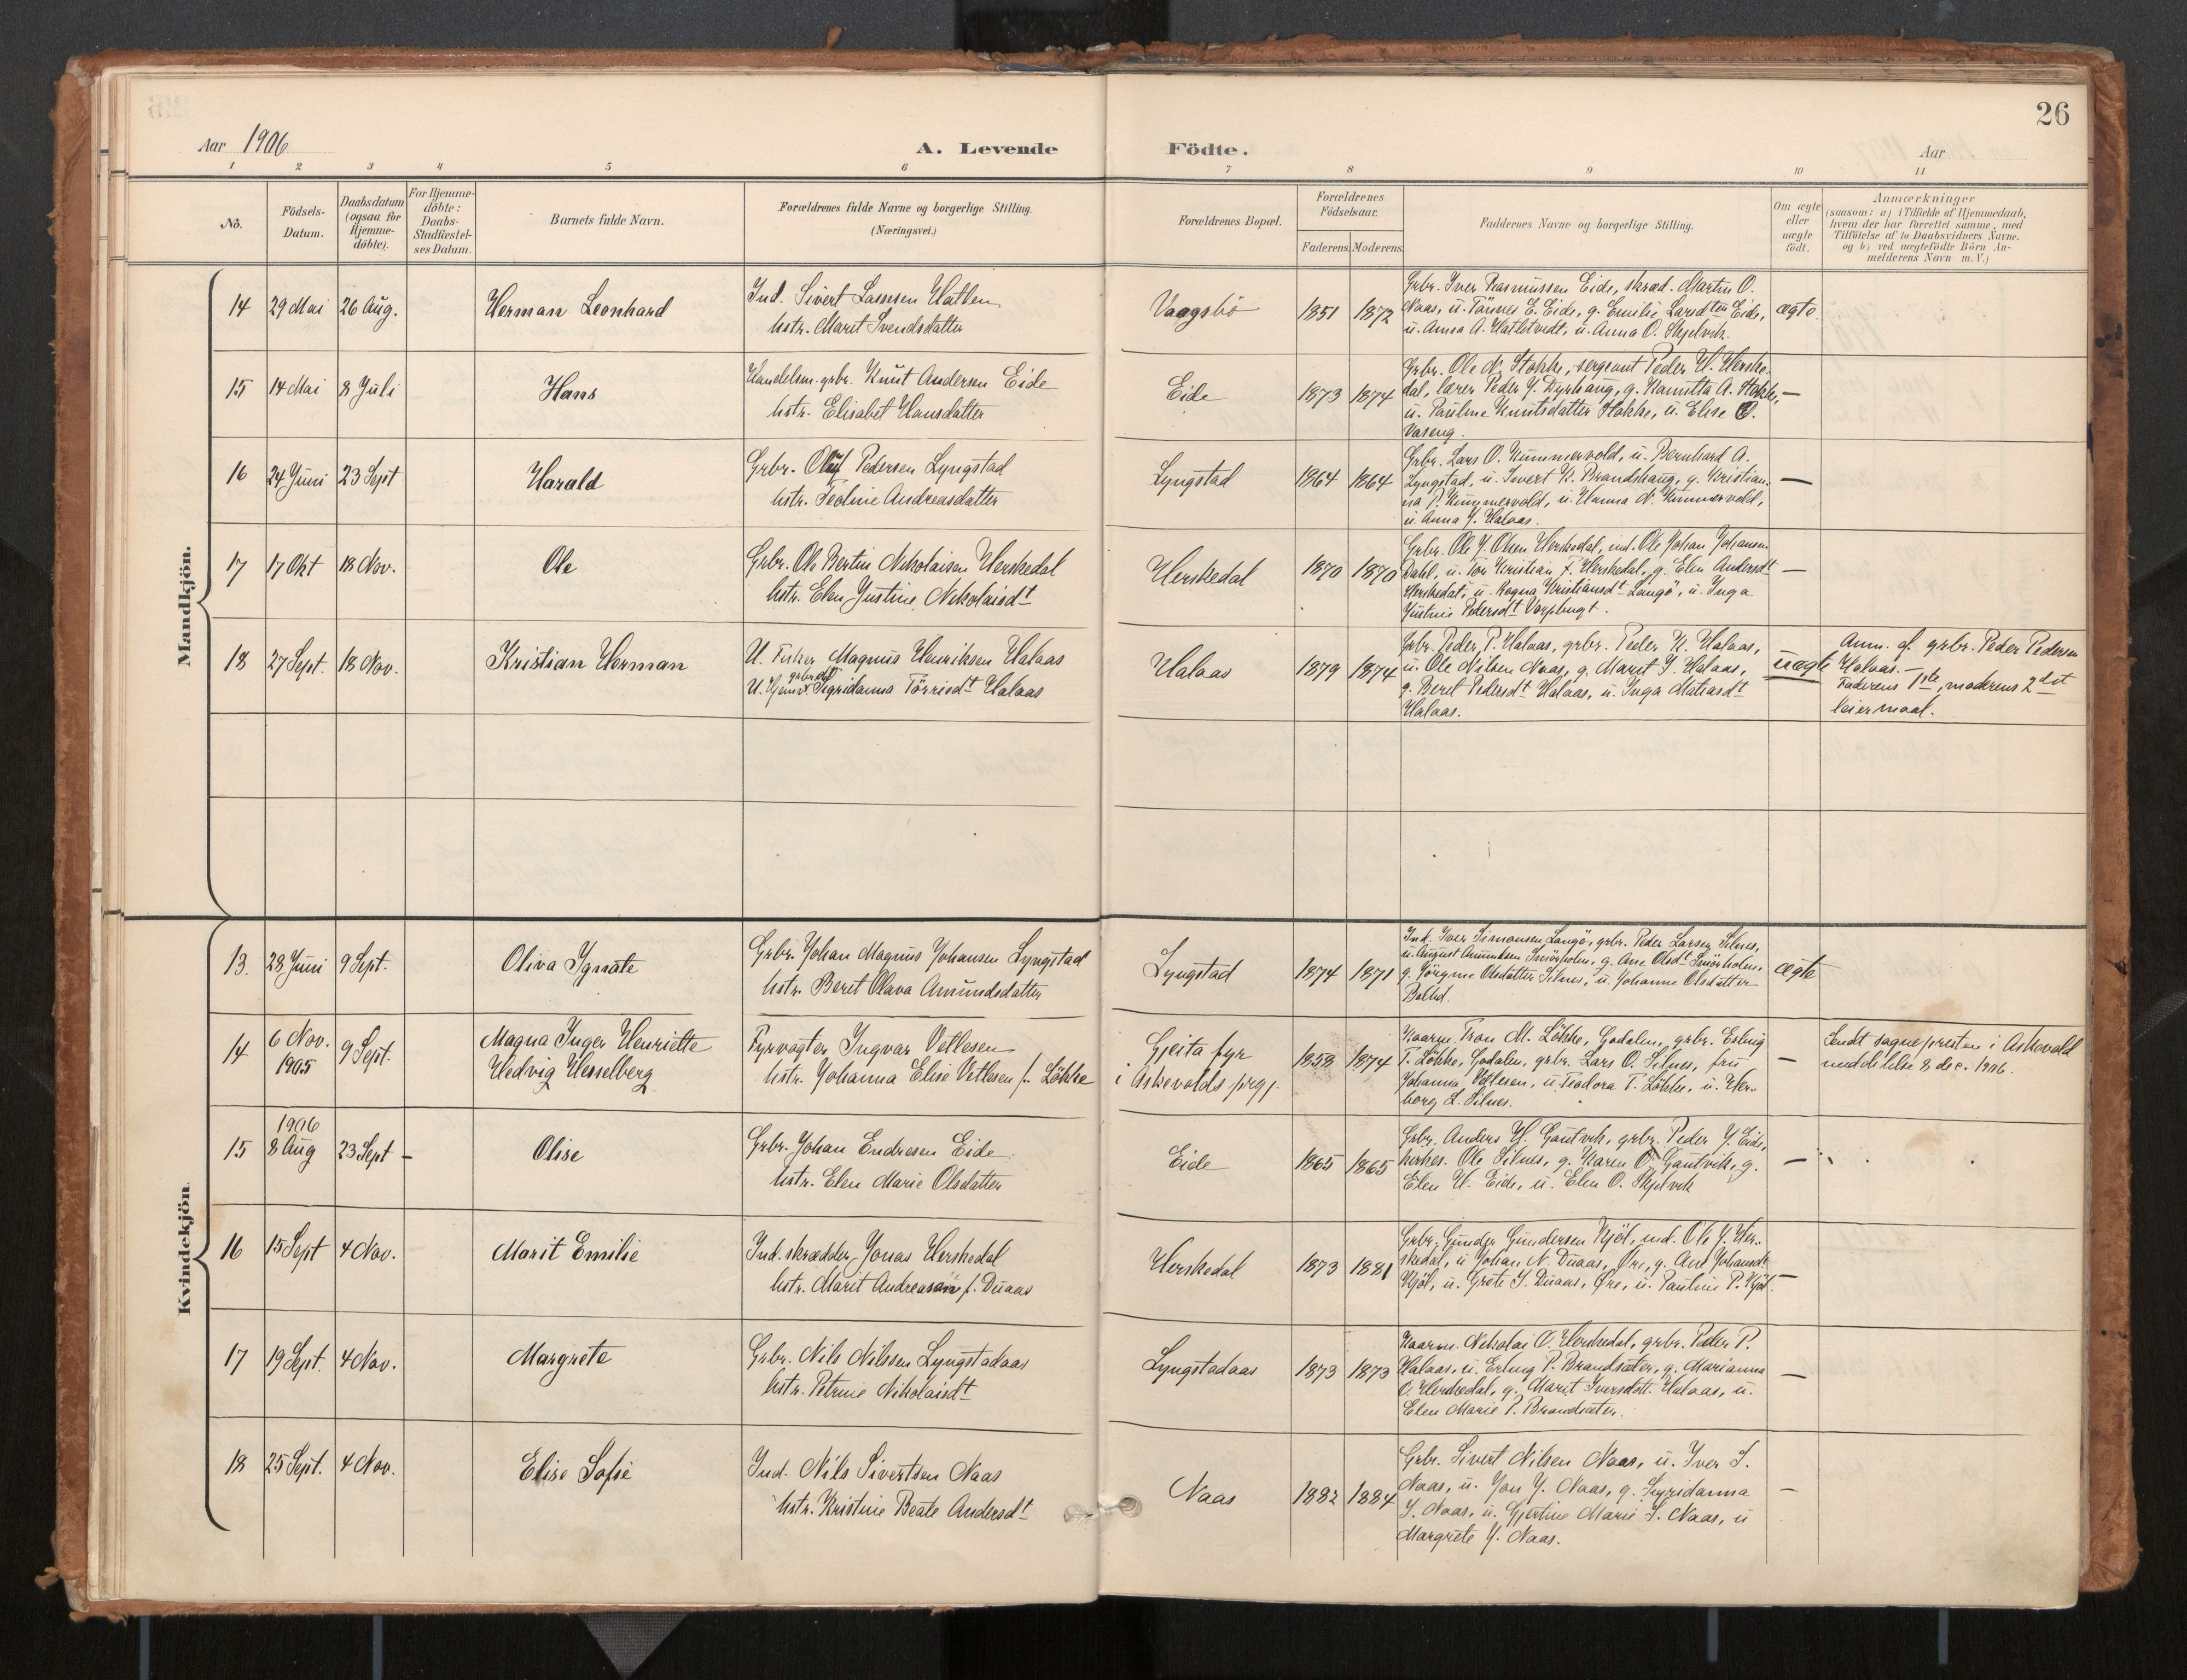 26
Aar 1906
A. Levende Födte.
Aar
1 2 3 4 5 6 7 8 9 10 11
No.
Födsels-
Datum.
Daabsdatum
(ogsaa for
Hjemme-
döbte).
For Hjemme-
döbte:
Daabs-
Stadfæstel-
ses Datum.
Barnets fulde Navn.
Forældrenes fulde Navne og borgerlige Stilling.
(Næringsvei.)
Forældrenes Bopæl.
Forældrenes
Födselsaar.
Faderens. Moderens.
Faddernes Navne og borgerlige Stilling.
Om ægte
eller
uægte
födt.
Anmærkninger
(saasom: a) i Tilfælde af Hjemmedaab,
hvem der har forrettet samme, med
Tilföielse af to Daabsvidners Navne.
og b) ved uægtefödte Börn An-
melderens Navn m.V.)
Mandkjön.
14 29 Mai 26 Aug. Herman Leonhard
Ind. Sivert Larsen Hatlen
hstr. Marit Svendsdatter
Vaagsbö 1851 1872
Grbr. Iver Rasmussen Eide, skræd. Martin O.
Naas, u. Tönnes E. Eide, g. Emilie Larsdtr Eide,
u. Anna A. Hatletvedt, u. Anna O. Skjelvik.
ægte
15 14 Mai 8 Juli Hans
Handelsm. grbr. Knut Andersen Eide
hstr. Elisabet Hansdatter
Eide 1873 1874
Grbr. Ole N. Stokke, sergeant Peder H. Herske-
dal, lærer Peder Y. Dyrhaug, g. Kamilta A. Stokke,
u. Pauline Knutsdatter Stokke, u. Elise O.
Vaseng.
—
16 24 Juni 23 Sept Harald
Grbr. Oluf Pedersen Lyngstad
hstr. Teoline Andreasdatter
Lyngstad 1864 1864
Grbr. Lars O. Kummervold, u. Bernhard A.
Lyngstad, u. Sivert K. Brandshaug, g. Kristian-
na P. Kummervold, u. Hanna N. Kummervold,
u. Anna J. Halaas.
—
17 17 Okt 18 Nov. Ole
Grbr. Ole Bertin Nikolaisen Herskedal
hstr. Elen Justine Nikolaisdt
Herskedal 1870 1870
Grbr. Ole J. Olsen Herskedal, ind. Ole Johan Johansen
Dahl, u. Tor Kristian F. Herskedal, g. Elen Andersdt
Herskedal, u. Ragna Kristiansdt Langö, u. Inga
Justine Pedersdt
—
18 27 Sept. 18 Nov. Kristian Herman
U. Fisker Magnus Henriksen Halaas
U. Sigridanna Törrisdt Halaas
Halaas 1879 1874
Grbr. Peder P. Halaas, grbr. Peder K. Halaas,
u. Ole Nilsen Naas, g. Marit J. Halaas,
g. Beret Pedersdt Halaas, u. Inga Matiasdt
Halaas.
uægte
Anm. af grbr. Peder Pedersen
Halaas. —
Faderens 1ste, moderens 2det
leiermaal.
Kvindekjön.
13. 28 Juni 9 Sept. Oliva Ignate
Grbr. Johan Magnus Johansen Lyngstad
hstr. Beret Olava Amundsdatter
Lyngstad 1874 1871
Ind. Iver Simonsen Langö, grbr. Peder Larsen Silnes,
u. August Amundsen Smörholm, g. Ane Olsdt Smörholm,
g. Jörgine Olsdatter Silnes, u. Johanne Olsdatter
ægte
14 6 Nov. 1905 9 Sept. Magna Inger Henriette
Hedvig Hesselberg
Fyrvogter Ingvar Vetlesen
hstr. Johanna Elise Vetlesen f. Löhke
Gjeita fyr
i Askevolds prgj. 1858 1874
Kaarm. Tron M. Löhke, Godalen, grbr. Erling
T. Löhke, Godalen, grbr. Lars O. Silnes, fru
Johanna Vetlesen, u. Teodora T. Löhke, u. Her-
borg L. Silnes.
—
Sendt sognepresten i Askevold
meddelelse 8 dec. 1906.
15 1906 8 Aug 23 Sept — Olise
Grbr. Johan Endresen Eide
hstr. Elen Marie Olsdatter
Eide 1865 1865
Grbr. Anders H. Gautvik, grbr. Peder J. Eide,
kirkes. Ole Silnes, g. Karen O. Gautvik, g.
Elen H. Eide, u. Elen O. Skjelvik
—
16 15 Sept 4 Nov. Marit Emilie
Ind. skrædder Jonas Herskedal
hstr. Marit Andreasen f. Duaas
Herskedal 1873 1881
Grbr. Gunder Gundersen Kjöl, ind. Ole J. Her-
skedal, u. Johan N. Duaas, Öre, g. Ane Johansdt
Kjöl, u. Grete I. Duaas, Öre, u. Pauline P. Kjöl.
—
17 19 Sept. 4 Nov. Margrete
Grbr. Nils Nilssen Lyngstadaas
hstr. Petrine Nikolaisdt
Lyngstadaas 1873 1873
Kaarm. Nikolai O. Herskedal, grbr. Peder P.
Halaas, u. Erling P. Brandsæter, g. Marianna
O. Herskedal, g. Marit Iversdatt. Halaas, u.
Elen Marie P. Brandsæter.
—
18 25 Sept. 4 Nov. Elise Sofie
Ind. Nils Sivertsen Naas
hstr. Kristine Beate Andersdt
Naas 1882 1884
Grbr. Sivert Nilsen Naas, u. Iver S.
Naas, u. Jon J. Naas, g. Sigridanna
J. Naas, u. Gjertine Marie S. Naas, u
Margrete J. Naas.
—